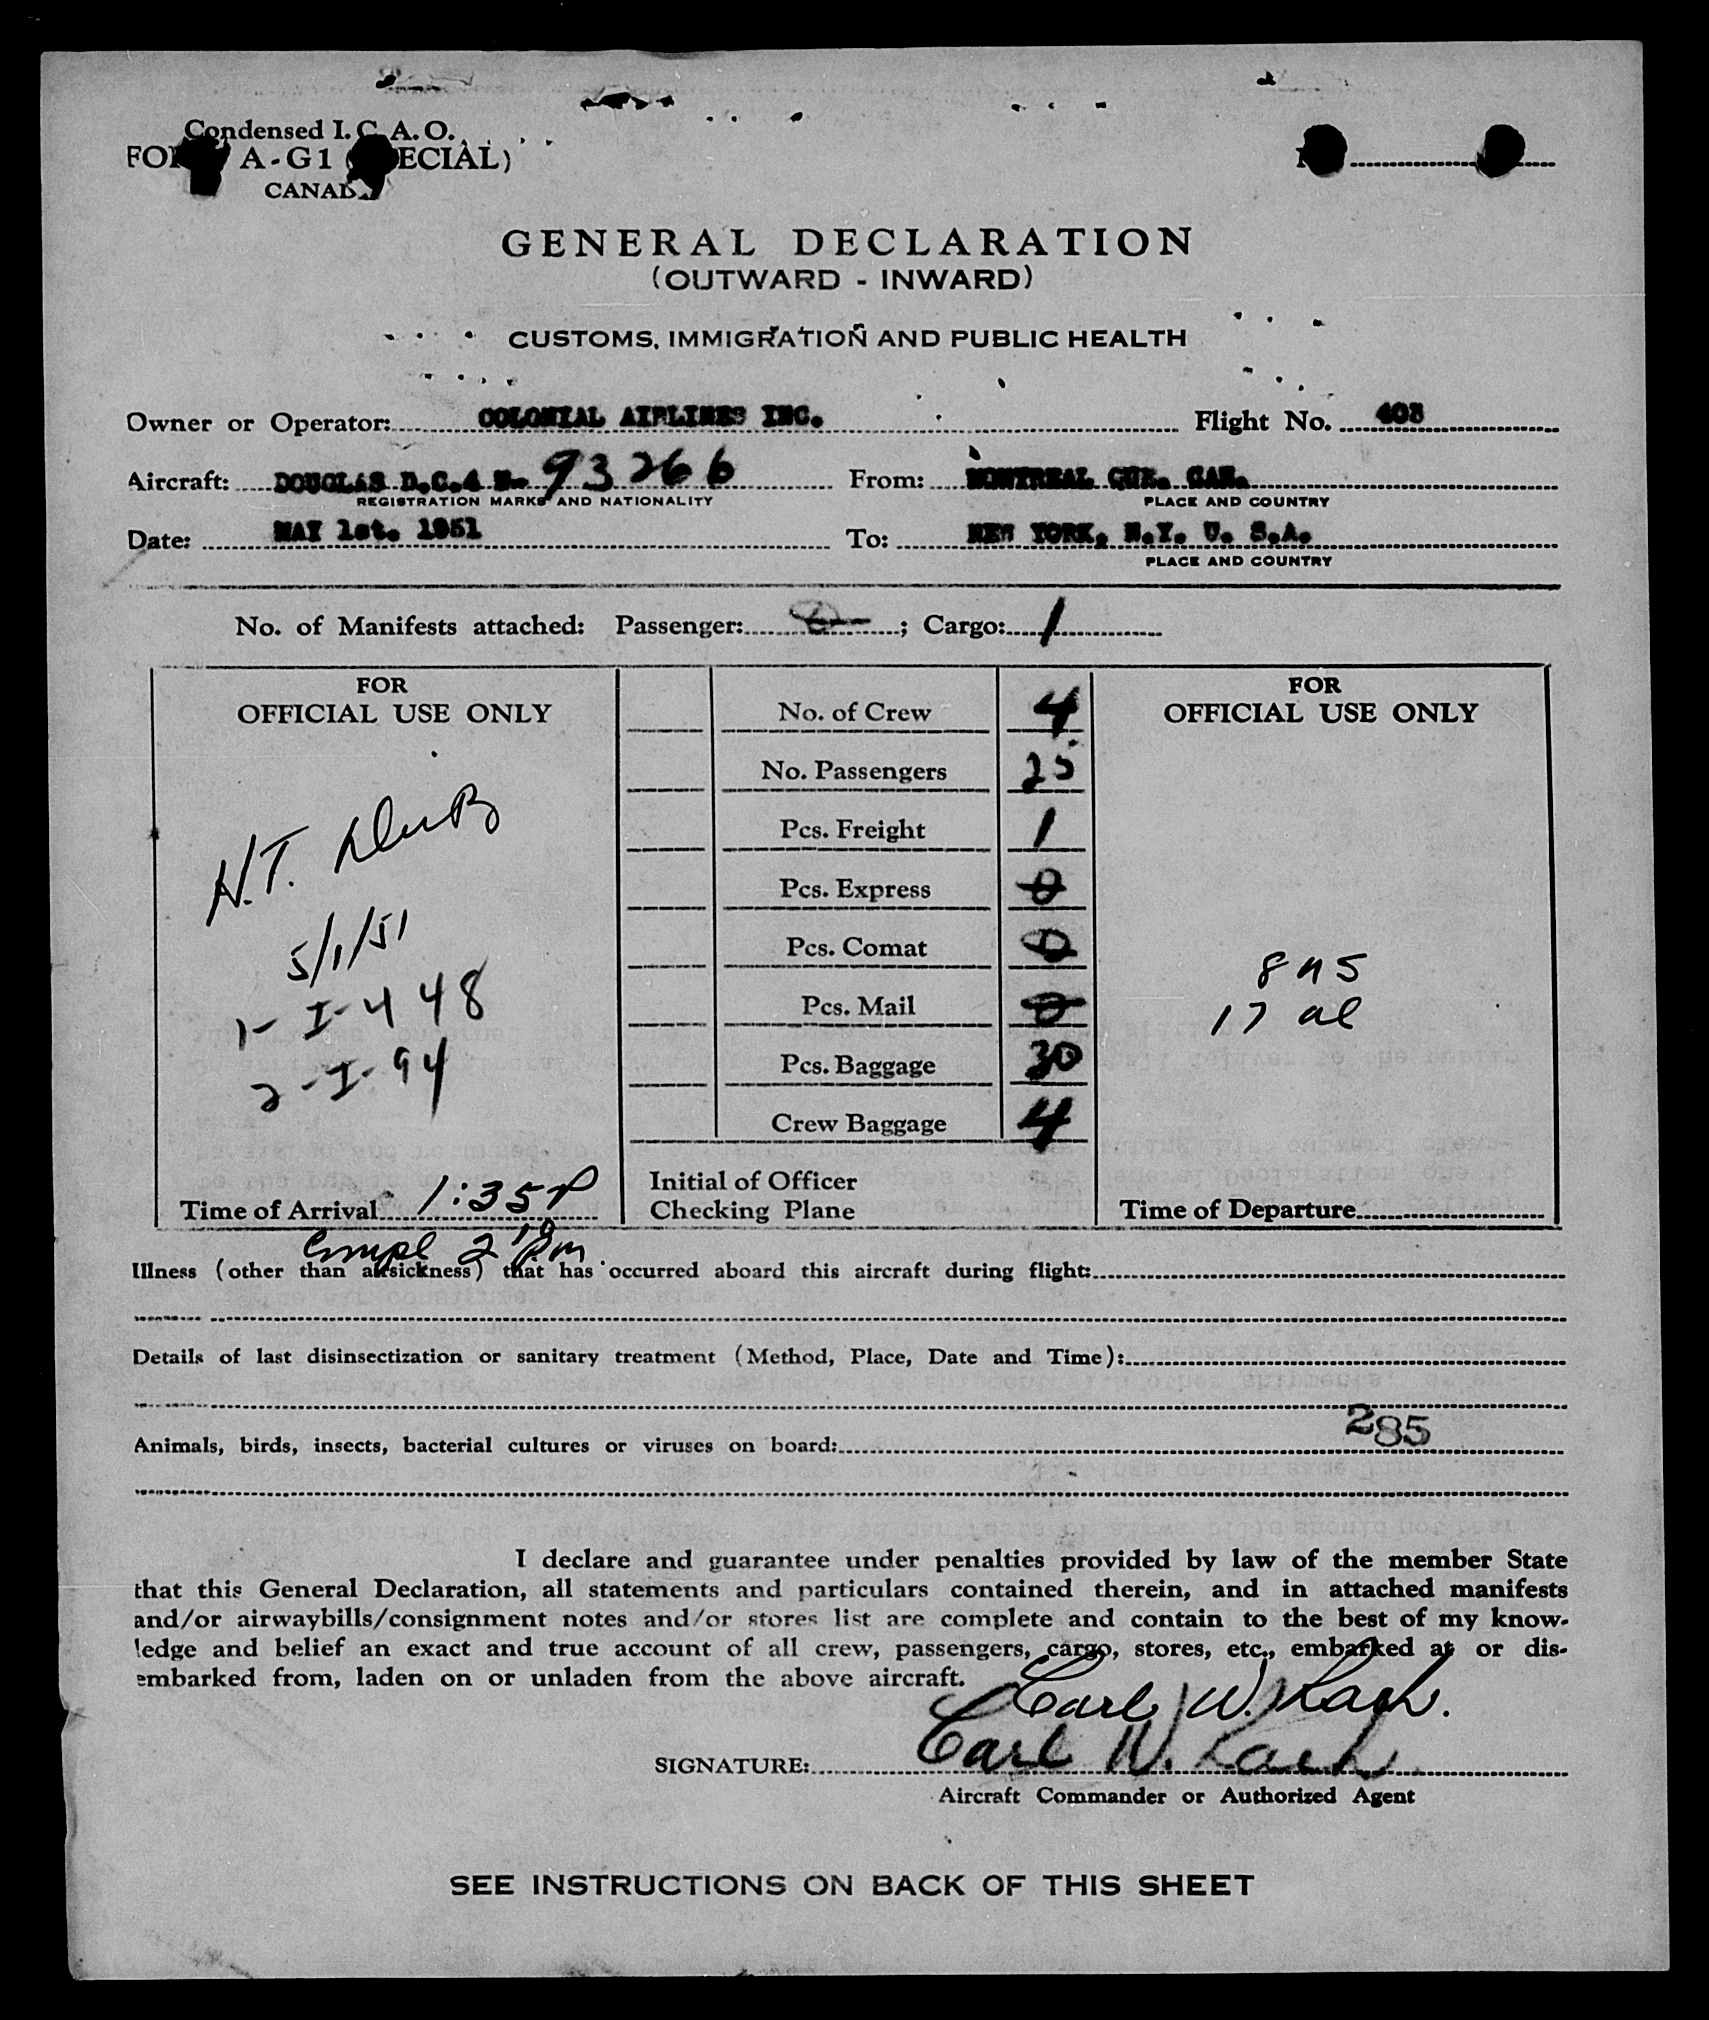 Condensed I. C. A. O.
A - G1
CANADA
GENERAL DECLARATION
(OUTWARD - INWARD)
CUSTOMS, IMMIGRATION AND PUBLIC HEALTH
Owner or Operator: COLONIAL AIRLINES INC. Flight No. 403
Aircraft: DOUGLAS D.C.4 N- 93266 From: MONTREAL QUE. CAN.
REGISTRATION MARKS AND NATIONALITY PLACE AND COUNTRY
Date: MAY 1st. 1951 To: NEW YORK, N.Y. U. S.A.
PLACE AND COUNTRY
No. of Manifests attached: Passenger: 0 ; Cargo: 1
FOR
OFFICIAL USE ONLY
H.T.
5/1/51
1- I- 448
2 - I- 94
Time of Arrival 1:35P
Compl 2 10 Pm
No. of Crew 4
No. Passengers 25
Pcs. Freight 1
Pcs. Express 0
Pcs. Comat 0
Pcs. Mail 0
Pcs. Baggage 30
Crew Baggage 4
Initial of Officer
Checking Plane
FOR
OFFICIAL USE ONLY
17 al
Time of Departure
Illness (other than airsickness) that has occurred aboard this aircraft during flight:
Details of last disinsectization or sanitary treatment (Method, Place, Date and Time):
285
Animals, birds, insects, bacterial cultures or viruses on board:
I declare and guarantee under penalties provided by law of the member State
that this General Declaration, all statements and particulars contained therein, and in attached manifests
and/or airwaybills/consignment notes and/or stores list are complete and contain to the best of my know-
ledge and belief an exact and true account of all crew, passengers, cargo, stores, etc., embarked at or dis-
embarked from, laden on or unladen from the above aircraft.
Carl W. Rach.
SIGNATURE: Carl W. Rach
Aircraft Commander or Authorized Agent
SEE INSTRUCTIONS ON BACK OF THIS SHEET